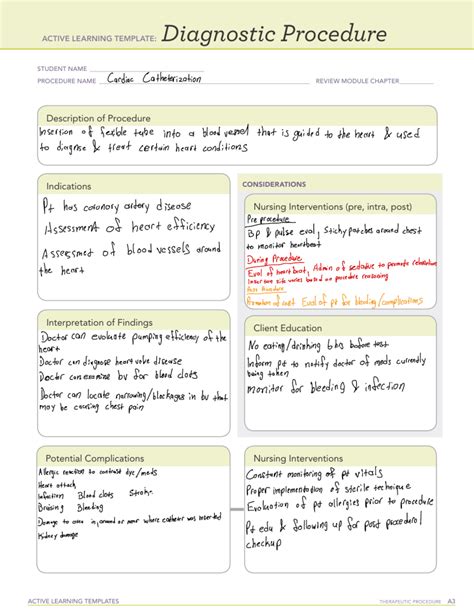 ACTIVE LEARNING TEMPLATE: Diagnostic Procedure
STUDENT NAME
PROCEDURE NAME Cardiac Catheterization REVIEW MODULE CHAPTER
Description of Procedure
Insertion of flexible tube into a blood vessel that is guided to the heart & used
to diagnose & treat certain heart conditions
Indications
Pt has coronary artery disease
Assessment of heart efficiency
Assessment of blood vessels around
the heart
CONSIDERATIONS
Nursing Interventions (pre, intra, post)
Pre procedure
BP & pulse eval, Stichy patches around chest
to monitor heartbeat
During Procedure
Eval of heartbeat, Admin of sedative to promote relaxation
site varies based on procedure reasoning
Post Procedure
Promotion of rest Eval of pt for bleeding/complications
Interpretation of Findings
Doctor can evaluate pumping efficiency of the
heart
Doctor can diagnose heart valve disease
Doctor can examine bv for blood clots
Doctor can locate narrowing/blockages in bv that
may be causing chest pain
Client Education
No eating/drinking 6 hrs before test
Inform pt to notify doctor of meds currently
being taken
monitor for bleeding & infection
Potential Complications
Allergic reaction to contrast dye/meds
Heart attack
Infection Blood clots Stroke
Bruising Bleeding
Damage to area in, around or near where catheter was inserted
Kidney damage
Nursing Interventions
Constant monitoring of pt vitals
Proper implementation of sterile technique
Evaluation of pt allergies prior to procedure
Pt edu & following up for post procedural
checkup
ACTIVE LEARNING TEMPLATES THERAPEUTIC PROCEDURE A3